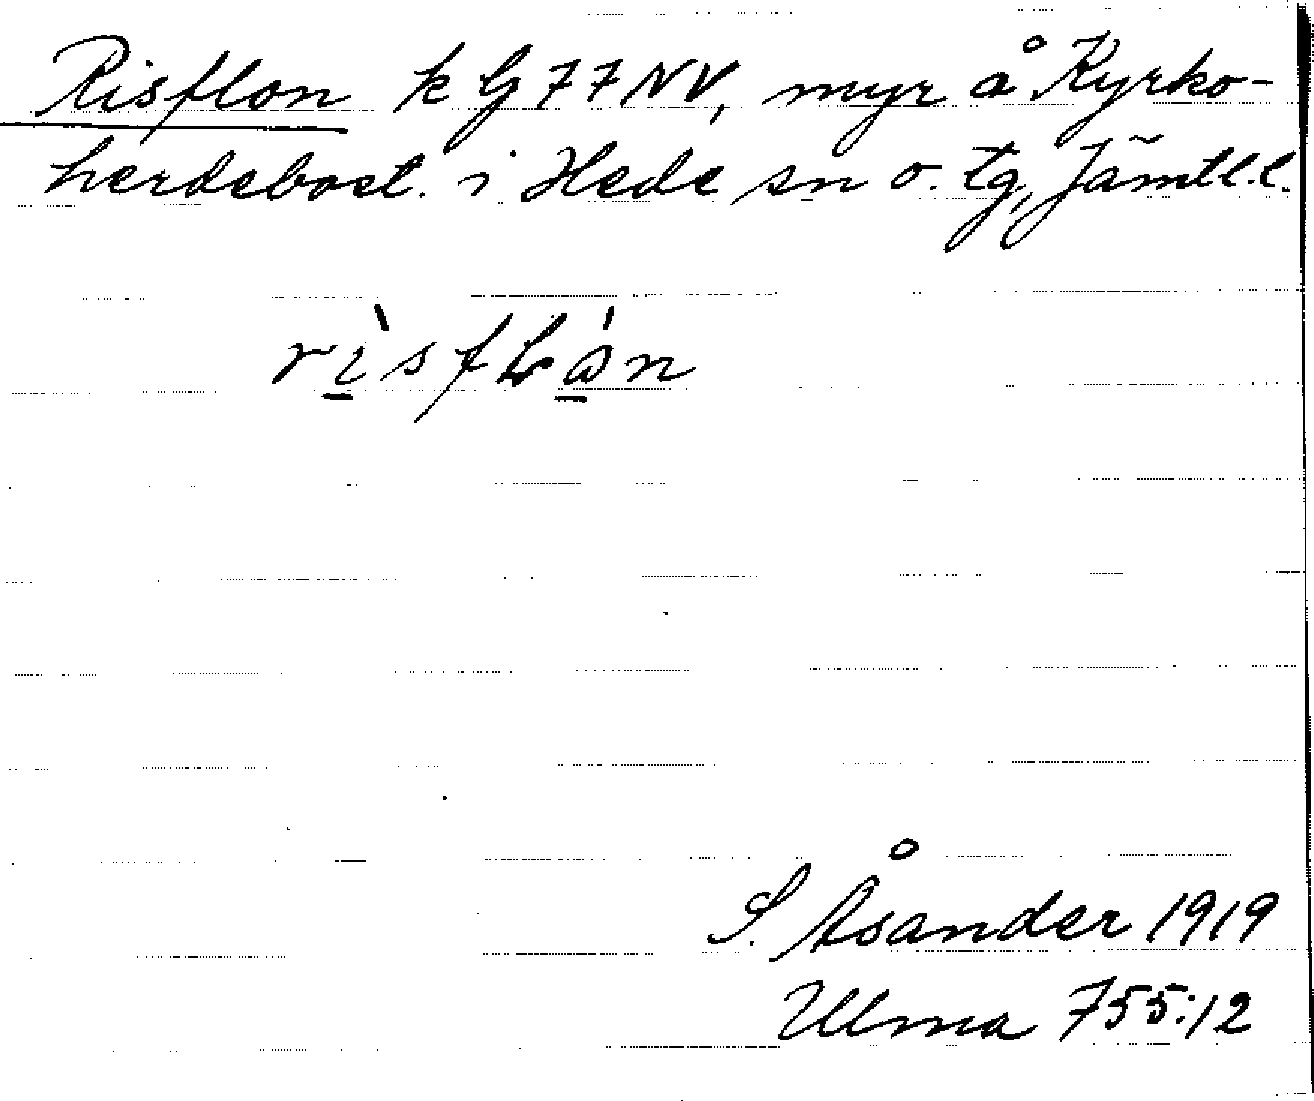 Risflon k G 77 NV, myr å Kyrko-
herdebost. i Hede sn o. tg, Jämtl.l.
rìsflón
S. Åsander 1919
Ulma 755:12